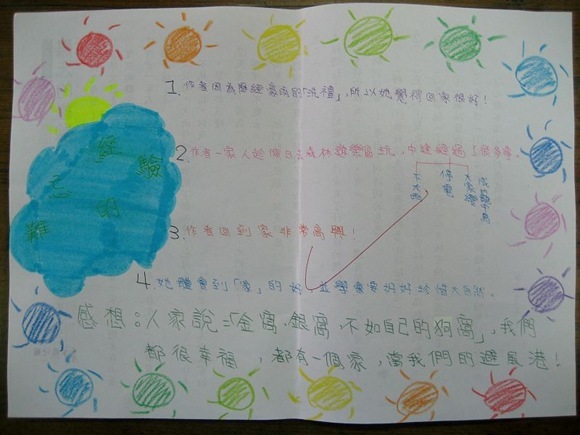 難忘的經驗
1.作者因為歷經豪雨的「洗禮」,所以她覺得回家很好!
2.作者一家人趁假日去森林遊樂區玩,中途經過了很多事。
下大雨
停電
大家擠
3.作者回到家非常高興!
4.她體會到「家」的好,並學會要好好珍惜大自然。
感想:人家說:「金窩、銀窩、不如自己的狗窩」,我們
都很幸福,都有一個家,當我們的避風港!